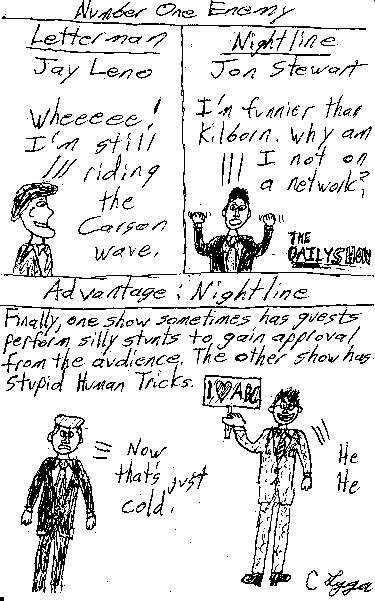 Number One Enemy
Letterman
Jay Leno
Wheeeee!
I'm still
riding
the
Carson
wave.
Nightline
Jon Stewart
I'm funnier than
Kilborn. Why am
I not on
a network?
THE
DAILY SHOW
Advantage: Nightline
Finally, one show sometimes has guests
perform silly stunts to gain approval
from the audience. The other show has
Stupid Human Tricks.
I ♥ ABC
Now
that's just
cold.
He
He